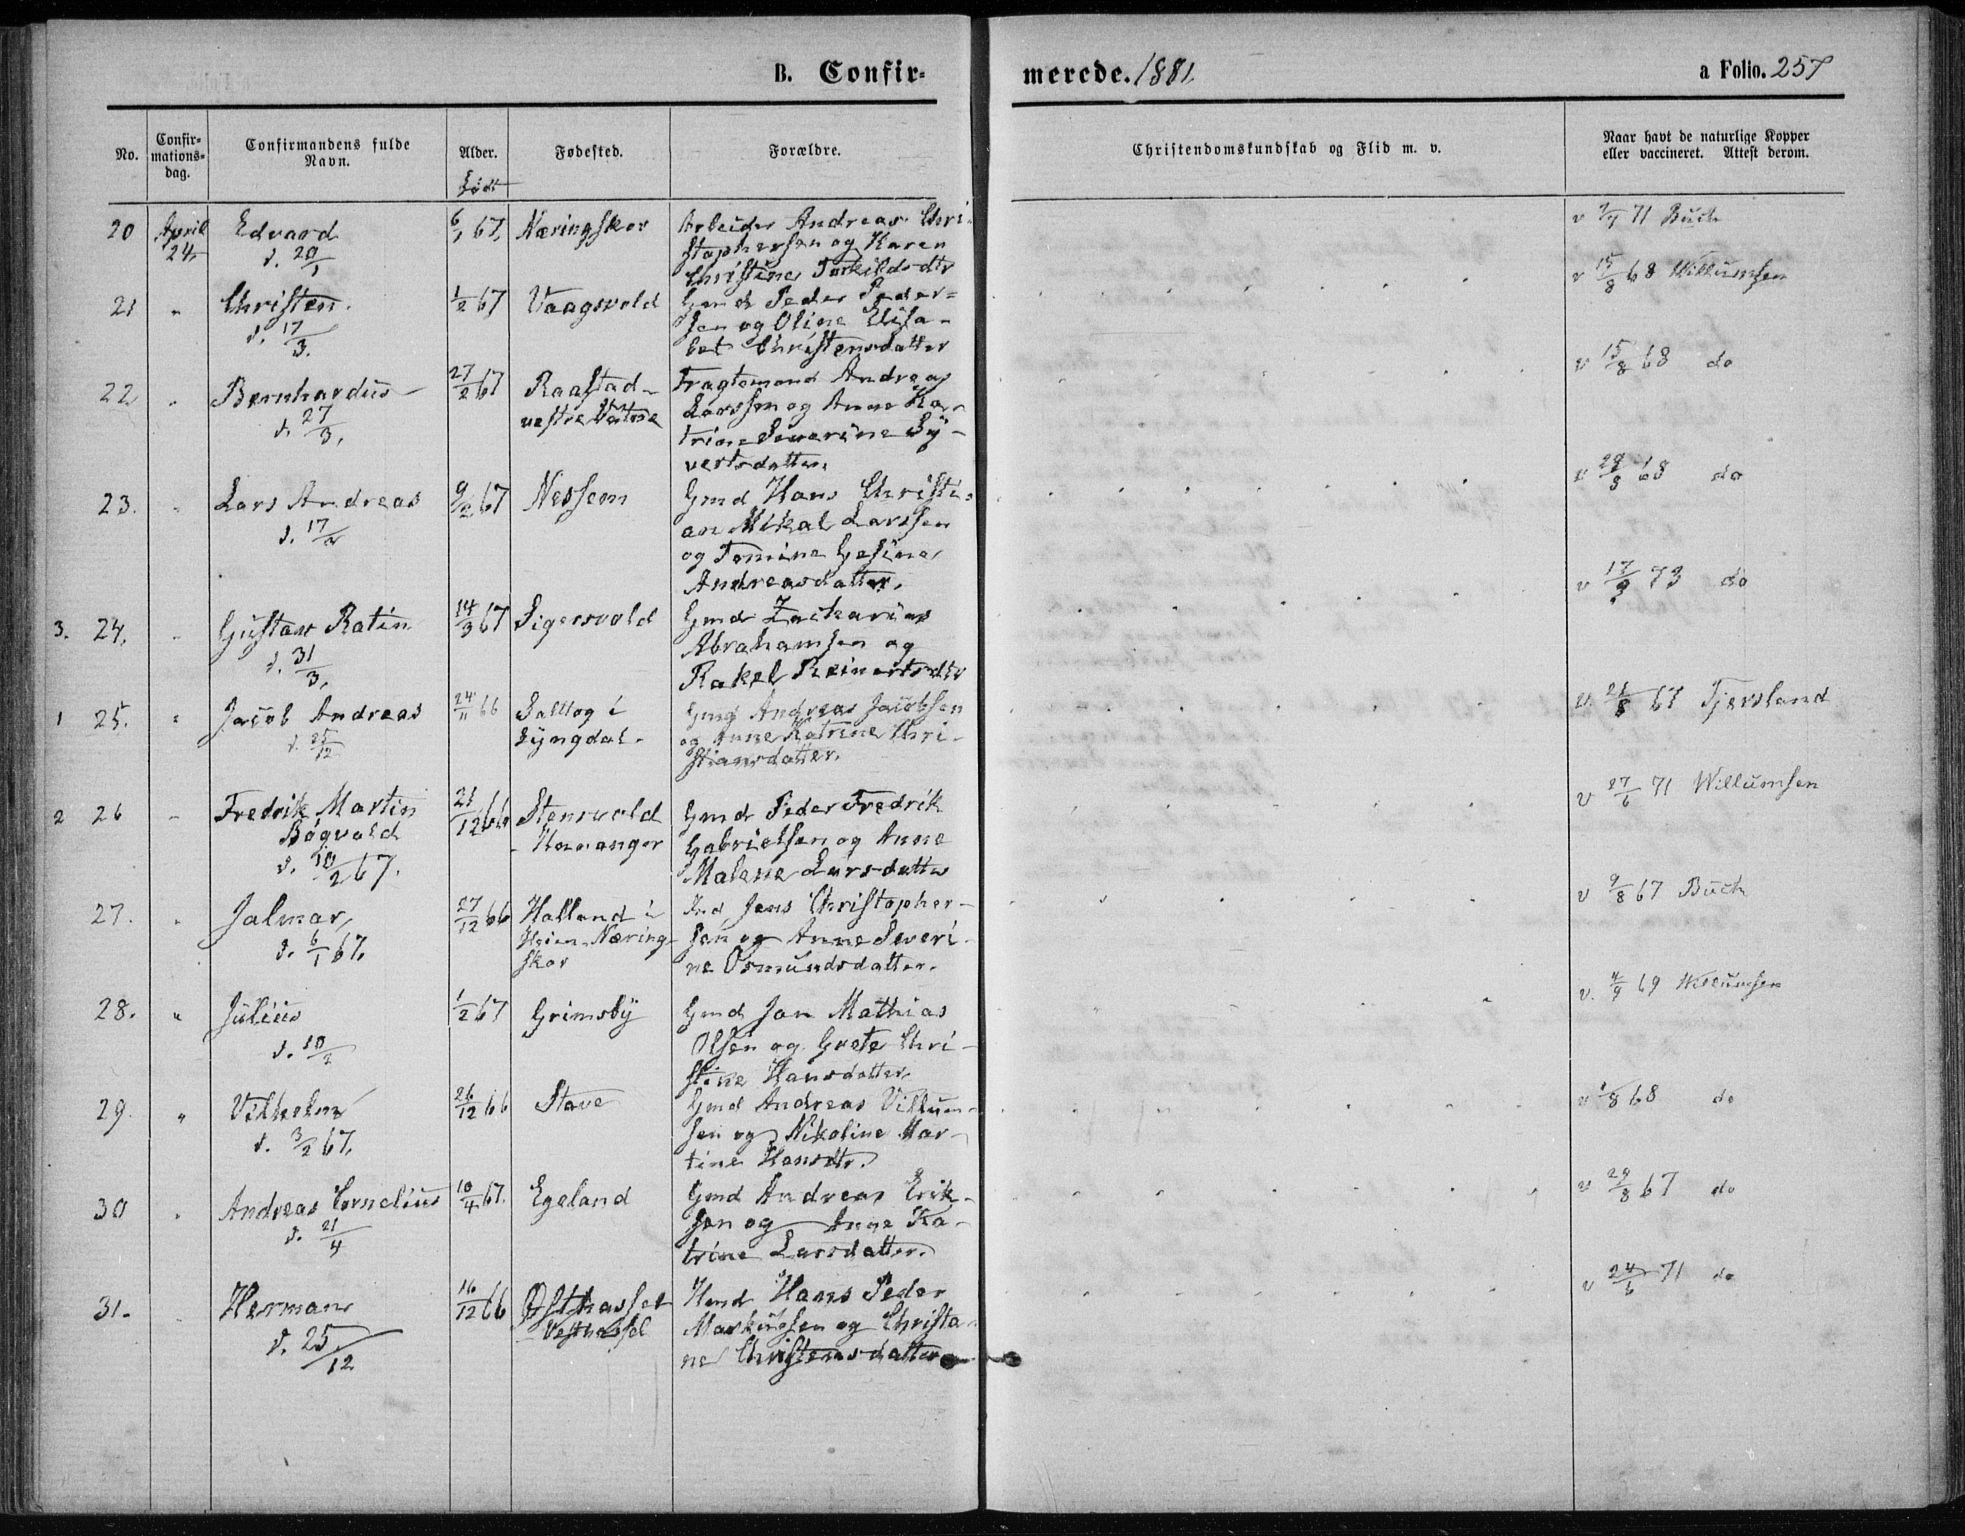 B. Confir-
merede. 1881.
a Folio. 257
No.
Confir-
mations-
dag.
Confirmandens fulde
Navn.
Alder.
Født
Fødested.
Forældre.
Christendomskundskab og Flid m. v.
Naar havt de naturlige Kopper
eller vaccineret. Attest derom.
20 April Edvard 6/1 67. Næringskor Arbeider Andreas Chri-
24. d. 20/1 stophersen og Karen
Christine Torkildsdtr
v 7/7 71 Buch
21 " Christen. 1/2 67 Vaagsvold Gmd Peder Peder-
d. 17/3. sen og Oline Elisa-
bet Christensdatter
v 15/8 68 Willumsen
22 " Bernhardus 27/2 67 Raastad Fragtemand Andreas
d. 27/3. vestre Vatne Larssen og Anne Ka-
trine Severine Sy-
vertsdatter.
v 15/8 68 do
23. " Lars Andreas 9/2 67 Nessem Gmd Hans Christi-
d. 17/2 an Mikal Larssen
og Tomine Gesine
Andreasdatter.
v 29/8 68 do
3. 24. " Gustav Ratin 14/3 67 Sigersvold Gmd Zacharias
d. 31/3. Abrahamsen og
Rakel Reinertsdtr
v 17/9 73 do
1 25. " Jacob Andreas 24/11 66 Salllog i Gmd Andreas Jacobsen
d. 25/12 Lyngdal. og Anne Katrine Chri-
stiansdatter.
v. 21/8 67 Tjersland
2 26 " Fredrik Martin 21/12 66 Stensvold Gmd Peder Fredrik
Bøgvald Havanger Gabrielsen og Anne
d. 10/2 67. Malene Larsdatter
v 27/6 71 Willumsen
27. " Jalmar 27/12 66 Halland i Ind Jens Christopher-
d. 6/1 67. Heien Næring- sen og Anne Severi-
skor ne Osmundsdatter.
v 9/8 67 Buch
28. " Julius 1/2 67 Grimsby Gmd Jan Mathias
d. 10/2 Olsen og Grete Chri-
stine Hansdatter.
v. 4/9 69 Willumsen
29. " Vilhelm 26/12 66 Stave Gmd Andreas Villum-
d. 3/2 67. sen og Nikoline Mar-
tine Hansdtr.
v /8 68 do
30 " Andreas Cornelius 10/4 67. Egeland Gmd Andreas Erik-
d. 21/4 sen og Anne Ka-
trine Larsdatter.
v 29/8 67 do
31. Herman 16/12 66 Østhassel Hmd Hans Peder
d. 25/12 Vesthassel Markussen og Christa-
ne Christensdatter
v 24/6 71 do